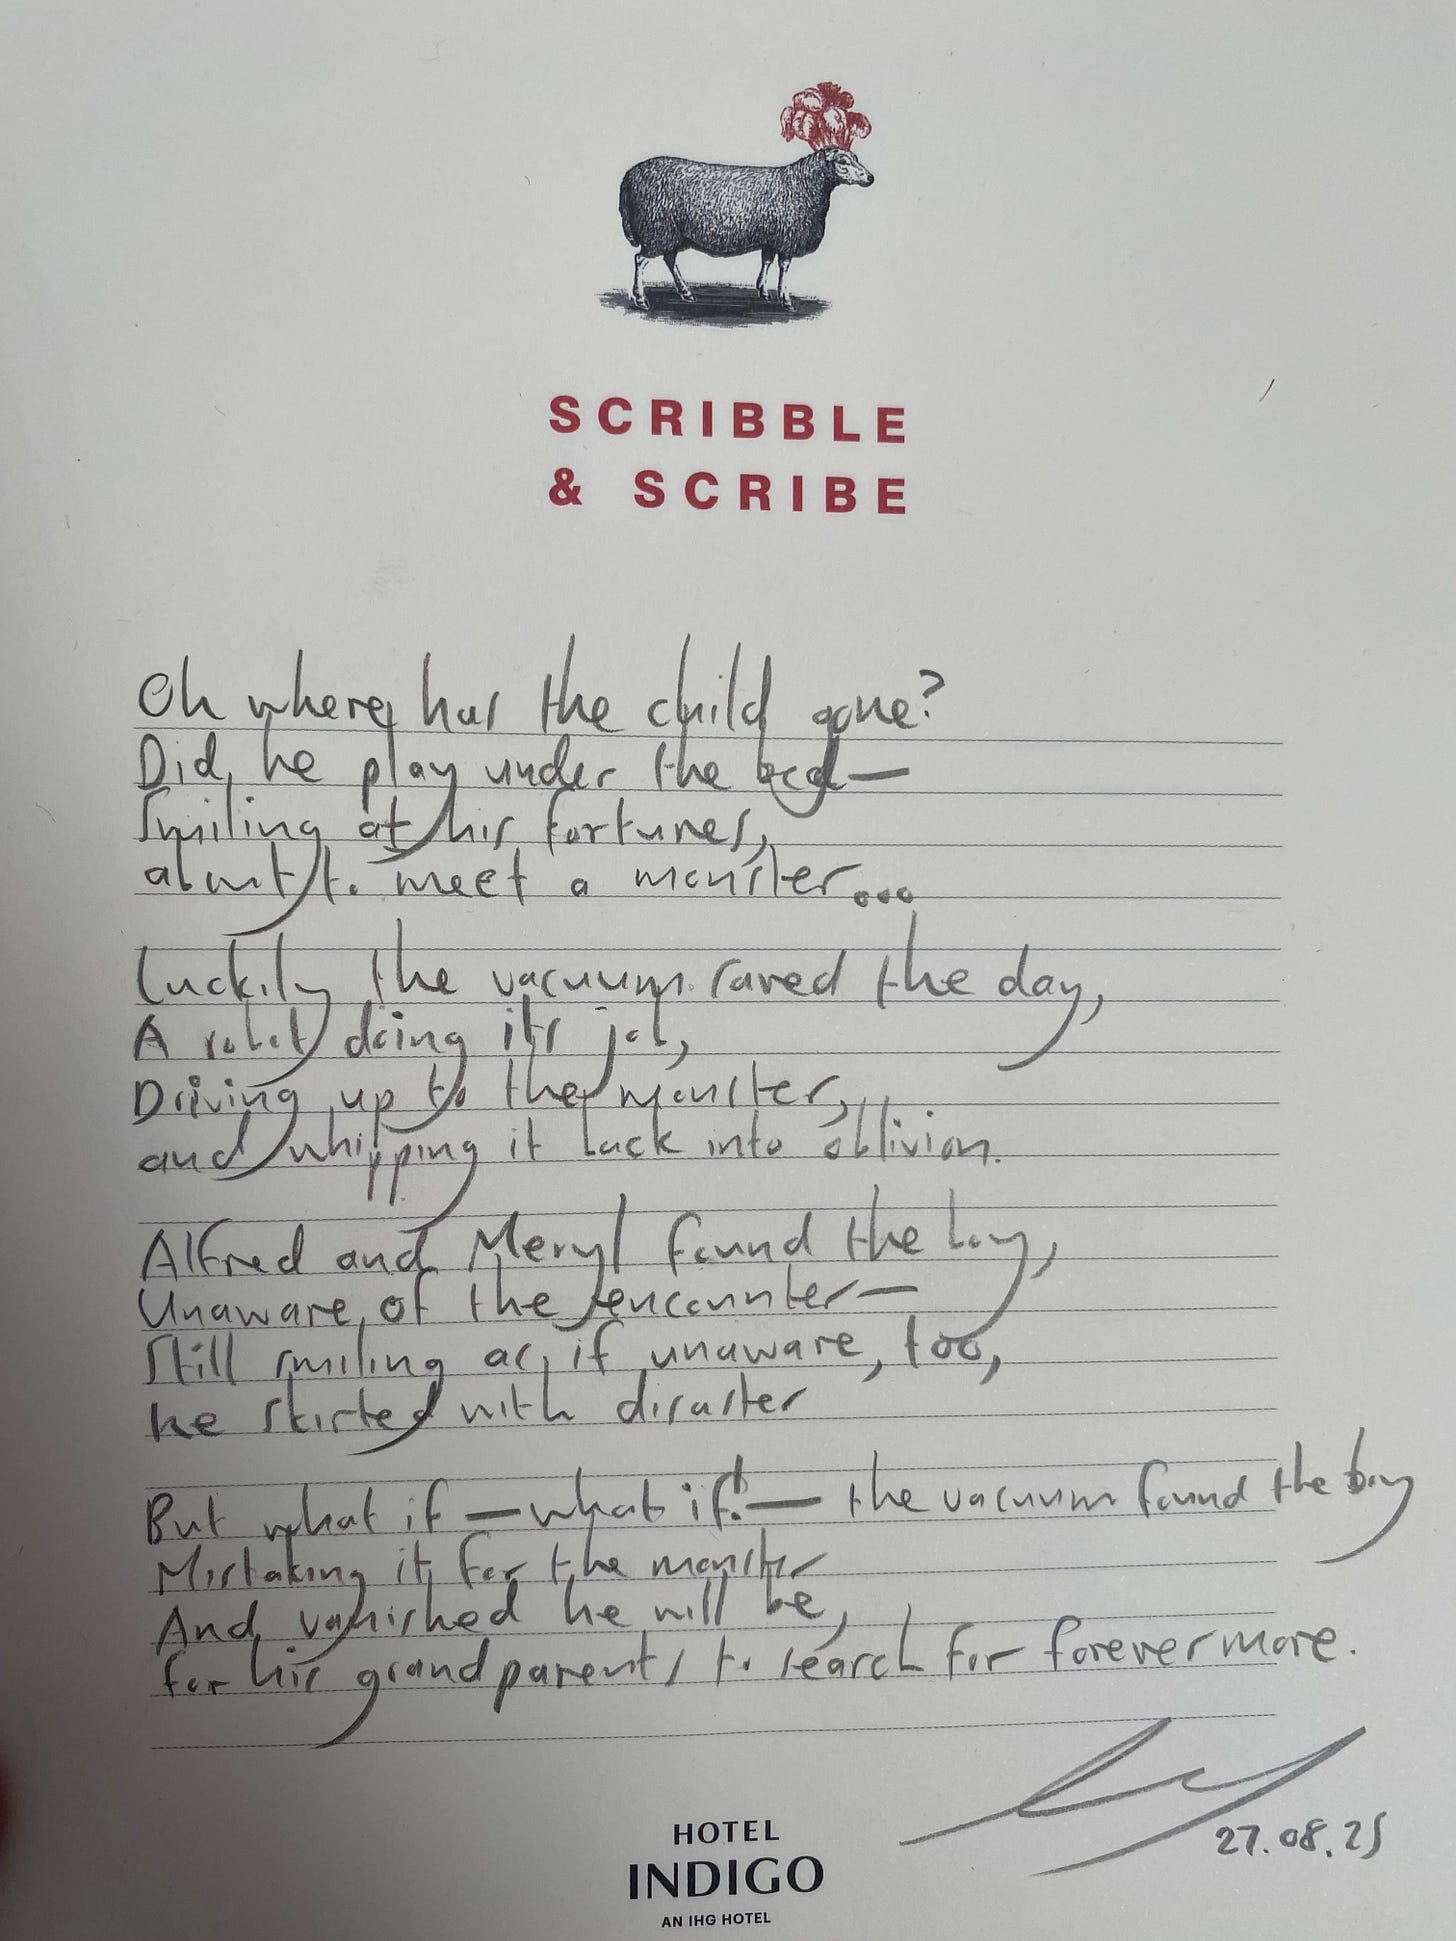 SCRIBBLE
& SCRIBE
Oh where has the child gone?
Did he play under the bed—
Smiling at his fortunes,
about to meet a monster...
Luckily the vacuum saved the day,
A robot doing its job,
Driving up to the monster,
and whipping it back into oblivion.
Alfred and Meryl found the boy,
Unaware of the encounter—
Still smiling as if unaware, too,
he skirted with disaster
But what if — what if! — the vacuum found the boy
Mistaking it for the monster
And vanished he will be,
for his grandparents to search for forevermore.
27.08.25
HOTEL
INDIGO
AN IHG HOTEL